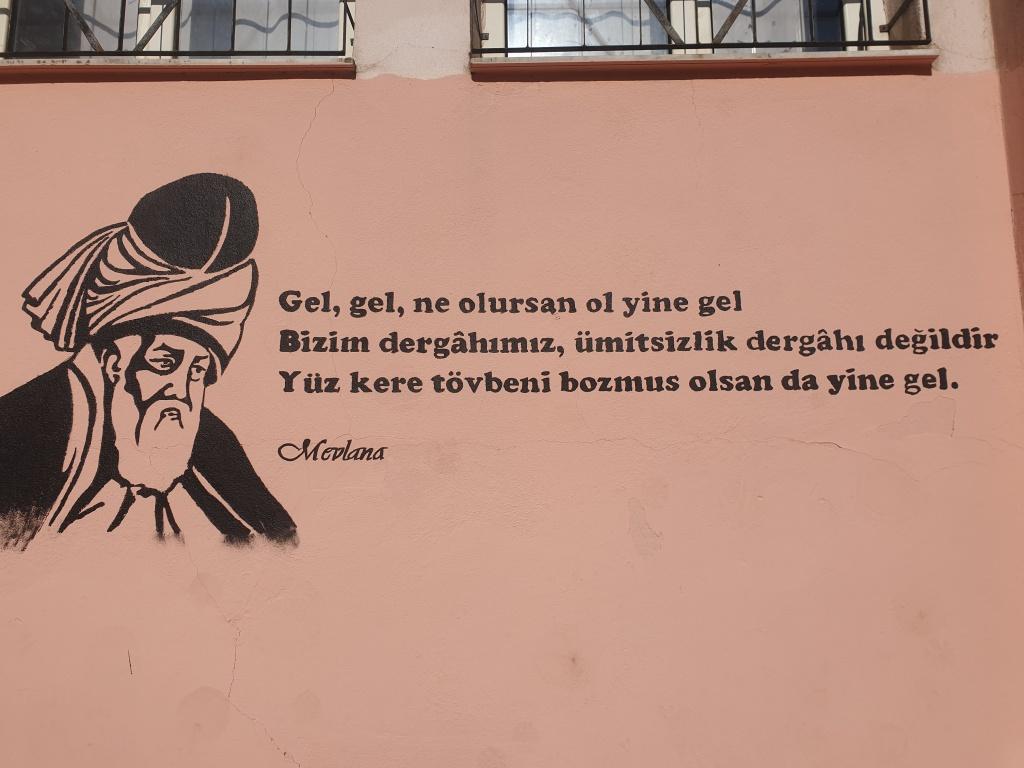 Gel, gel, ne olursan ol yine gel
Bizim dergâhımız, ümitsizlik dergâhı değildir
Yüz kere tövbeni bozmus olsan da yine gel.
Mevlana